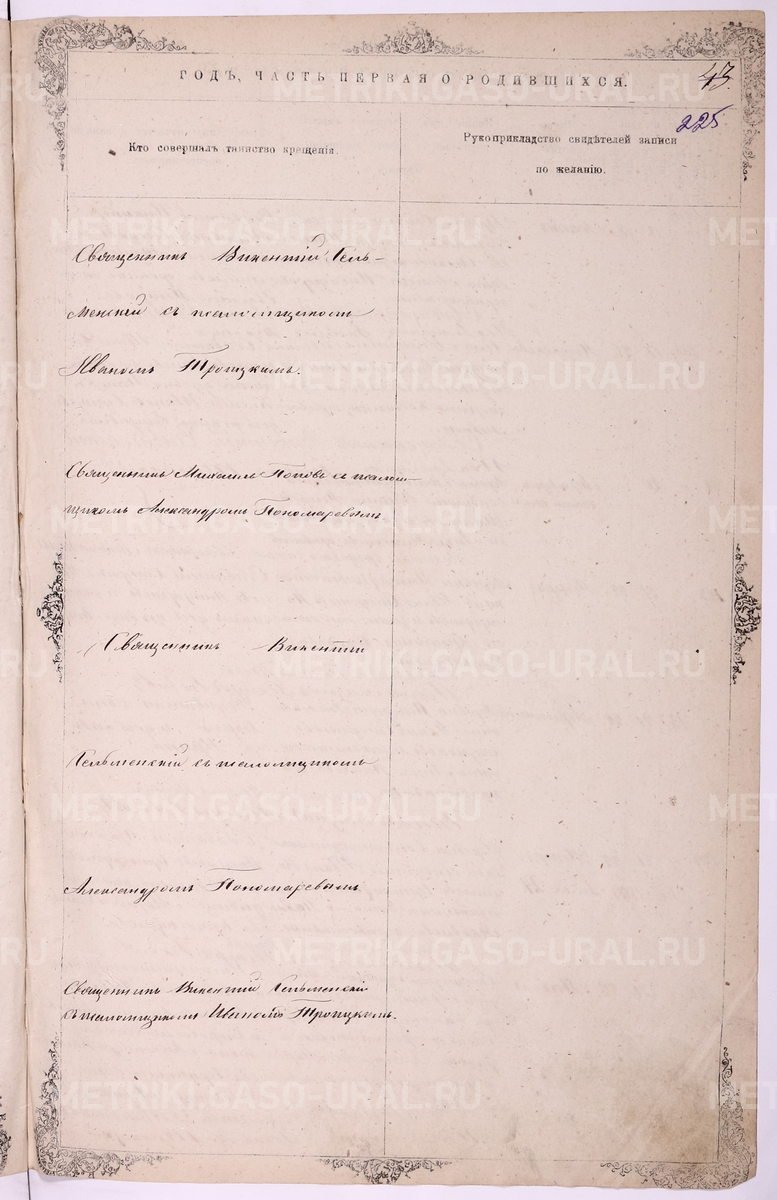 ГОДЪ, ЧАСТЬ ПЕРВАЯ О РОДИВШИХСЯ.
43.
225
Кто совершалъ таинство крещенія.
Рукоприкладство свидѣтелей записи
по желанію.
Священникъ Викентій Гель-
менскій съ псаломщикомъ
Иваномъ Троицкимъ.
Священникъ Михаилъ Поповъ съ псалом-
щикомъ Александромъ Пономаревымъ
Священникъ Викентій
Гельменскій съ псаломщикомъ
Александромъ Пономаревымъ
Священникъ Викентій Гельменскій
съ псаломщикомъ Иваномъ Троицкимъ.
METRIKI.GASO-URAL.RU